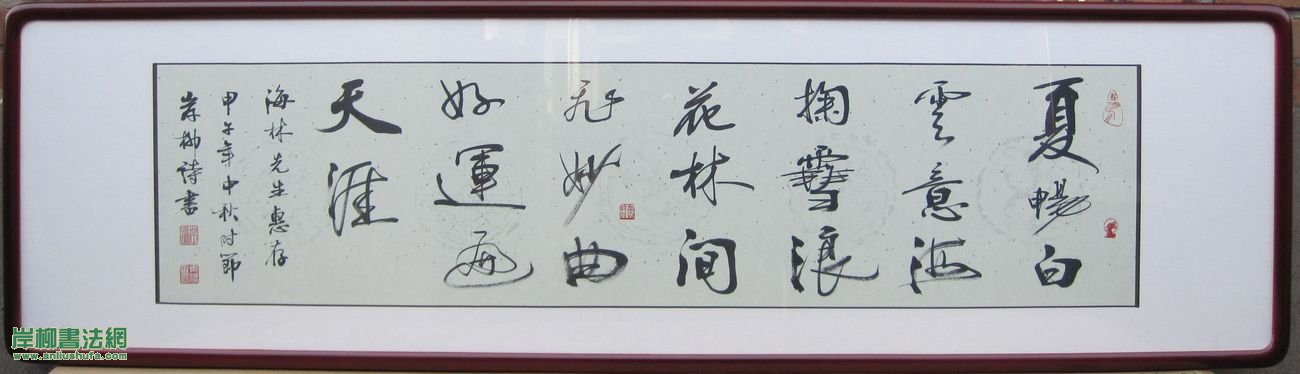 夏暢白
雲意海
掬雪浪
花林間
飛妙曲
好運遍
天涯
海林先生惠存
甲午年中秋时節
岸柳詩書
岸柳書法網
www.anliushufa.com